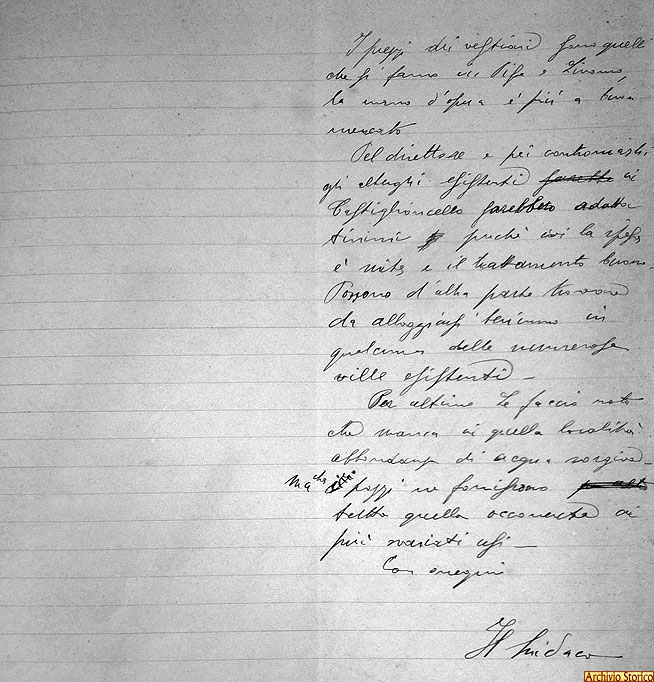 I prezzi dei vestiari sono quelli
che si fanno in Pisa e Livorno,
la mano d'opera è più a buon
mercato
Pel direttore e pei
gli alberghi esistenti in
Castiglioncello sarebbero adatta
tissimi perchè ivi la spesa
è mite e il trattamento buono.
Possono d'altra parte trovare
da alloggiarsi benissimo in
qualcuna delle numerose
ville esistenti –
Per ultimo Le faccio noto
che manca in quella località
abbondanza di acqua sorgiva –
ma che i pozzi ne forniscono
tutta quella occorrente ai
più svariati usi –
Con ossequi
Il Sindaco
Archivio Storico